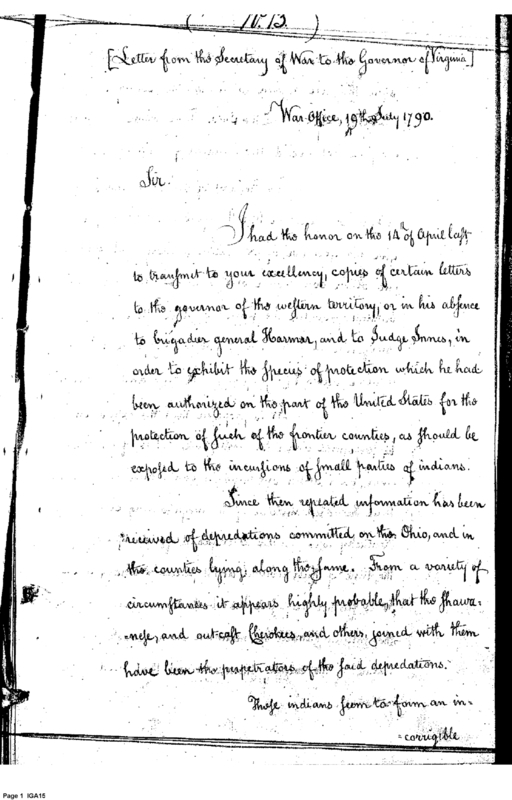 ( No. 13. )
[Letter from the Secretary of War to the Governor of Virginia]
War-Office, 19th July 1790.
Sir.
I had the honor on the 14th of April last
to transmit to your excellency, copies of certain letters
to the governor of the western territory, or in his absence
to brigadier general Harmar, and to Judge Innes, in
order to exhibit the species of protection which he had
been authorized on the part of the United States for the
protection of such of the frontier counties, as should be
exposed to the incursions of small parties of indians.
Since then repeated information has been
received of depredations committed on the Ohio, and in
the counties lying along the same. From a variety of
circumstances it appears highly probable, that the Shawa-
-nese, and out-cast Cherokees, and others, joined with them
have been the perpetrators of the said depredations.
Those indians seem to form an in-
-corrigible
Page 1 IGA15